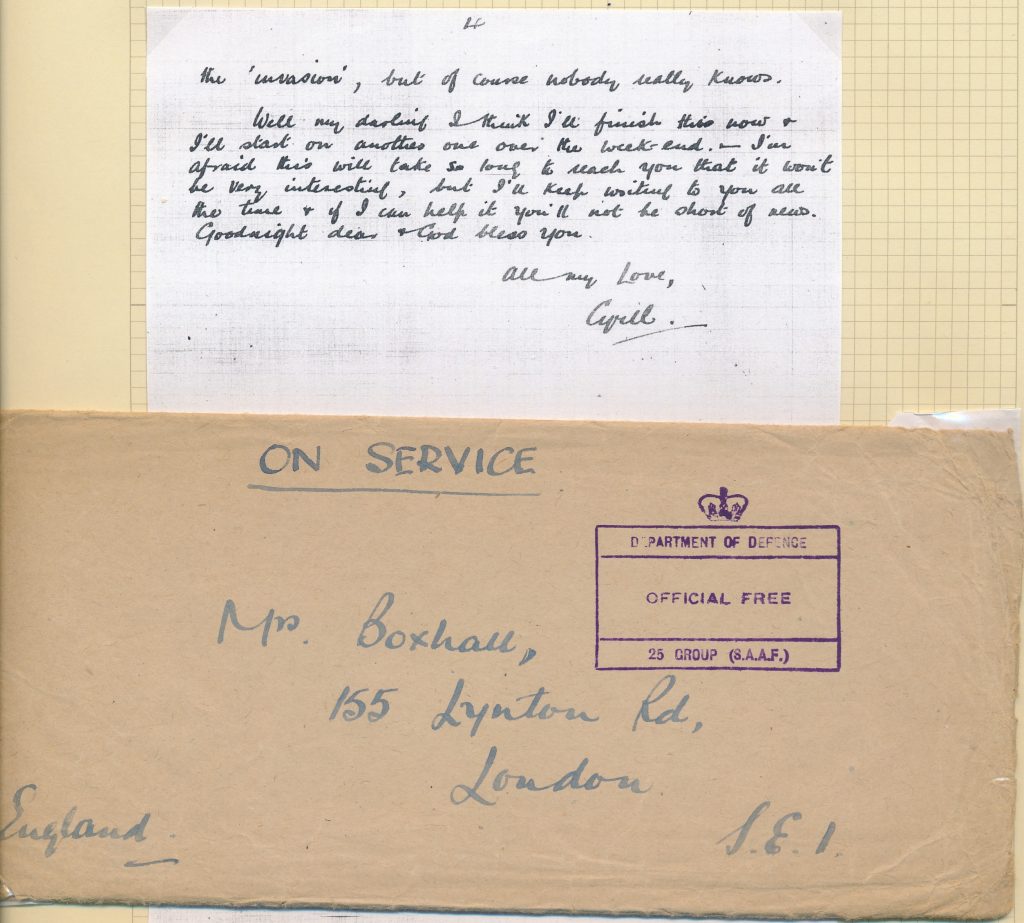 4
the 'invasion', but of course nobody really knows.
Well my darling I think I'll finish this now &
I'll start on another one over the week-end. — I'm
afraid this will take so long to reach you that it won't
be very interesting, but I'll keep writing to you all
the time & if I can help it you'll not be short of news.
Goodnight dear & God bless you.
All my Love,
Cyril.
ON SERVICE
DEPARTMENT OF DEFENCE
OFFICIAL FREE
25 GROUP (S.A.A.F.)
Mrs. Boxhall,
155 Lynton Rd,
London
S.E.1.
England.